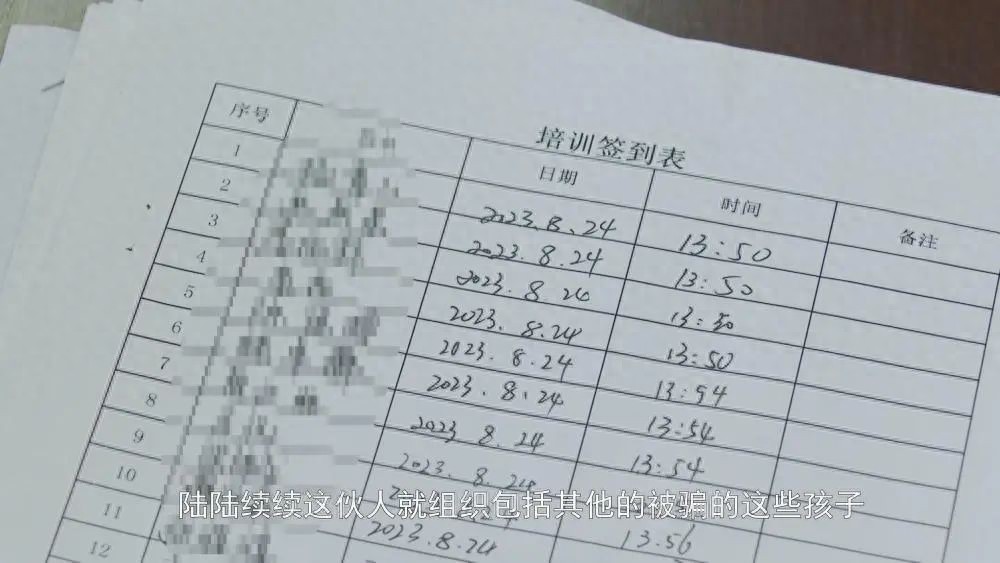 培训签到表
序号 日期 时间 备注
1 2023.8.24 13:50
2 2023.8.24 13:50
3 2023.8.24
4 2023.8.24 13:50
5 2023.8.24 13:54
6 2023.8.24 13:54
7 2023 8.24 13:54
8 2023.8.24
9 13.56
10 2023.8.24
11
12
陆陆续续这伙人就组织包括其他的被骗的这些孩子